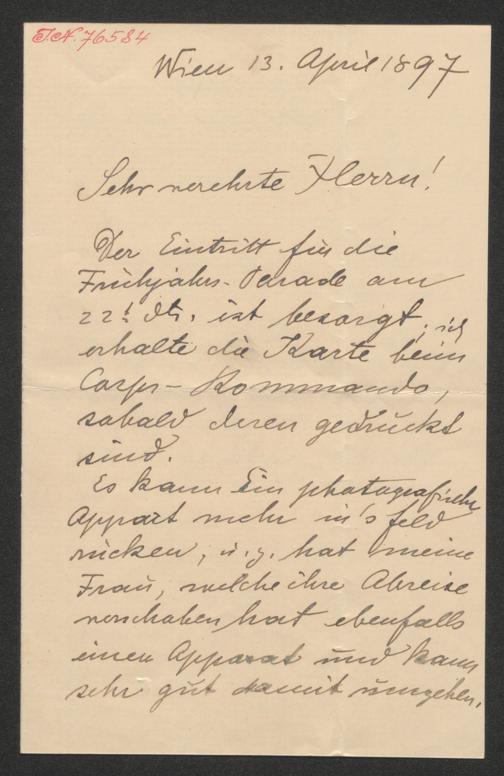 J.N. 76584
Wien 13. April 1897
Sehr verehrte Herrn!
Der Eintritt für die
Frühjahrs-Parade am
22t. dts. ist besorgt, ich
erhalte die Karte beim
Corps-Kommando,
sobald deren gedruckt
sind.
Es kann Ein photografischer
Apparat mehr in's feld
rücken, u. z. hat meine
Frau, welche ihre Abreise
verschoben hat ebenfalls
einen Apparat und kann
sehr gut damit umgehen.